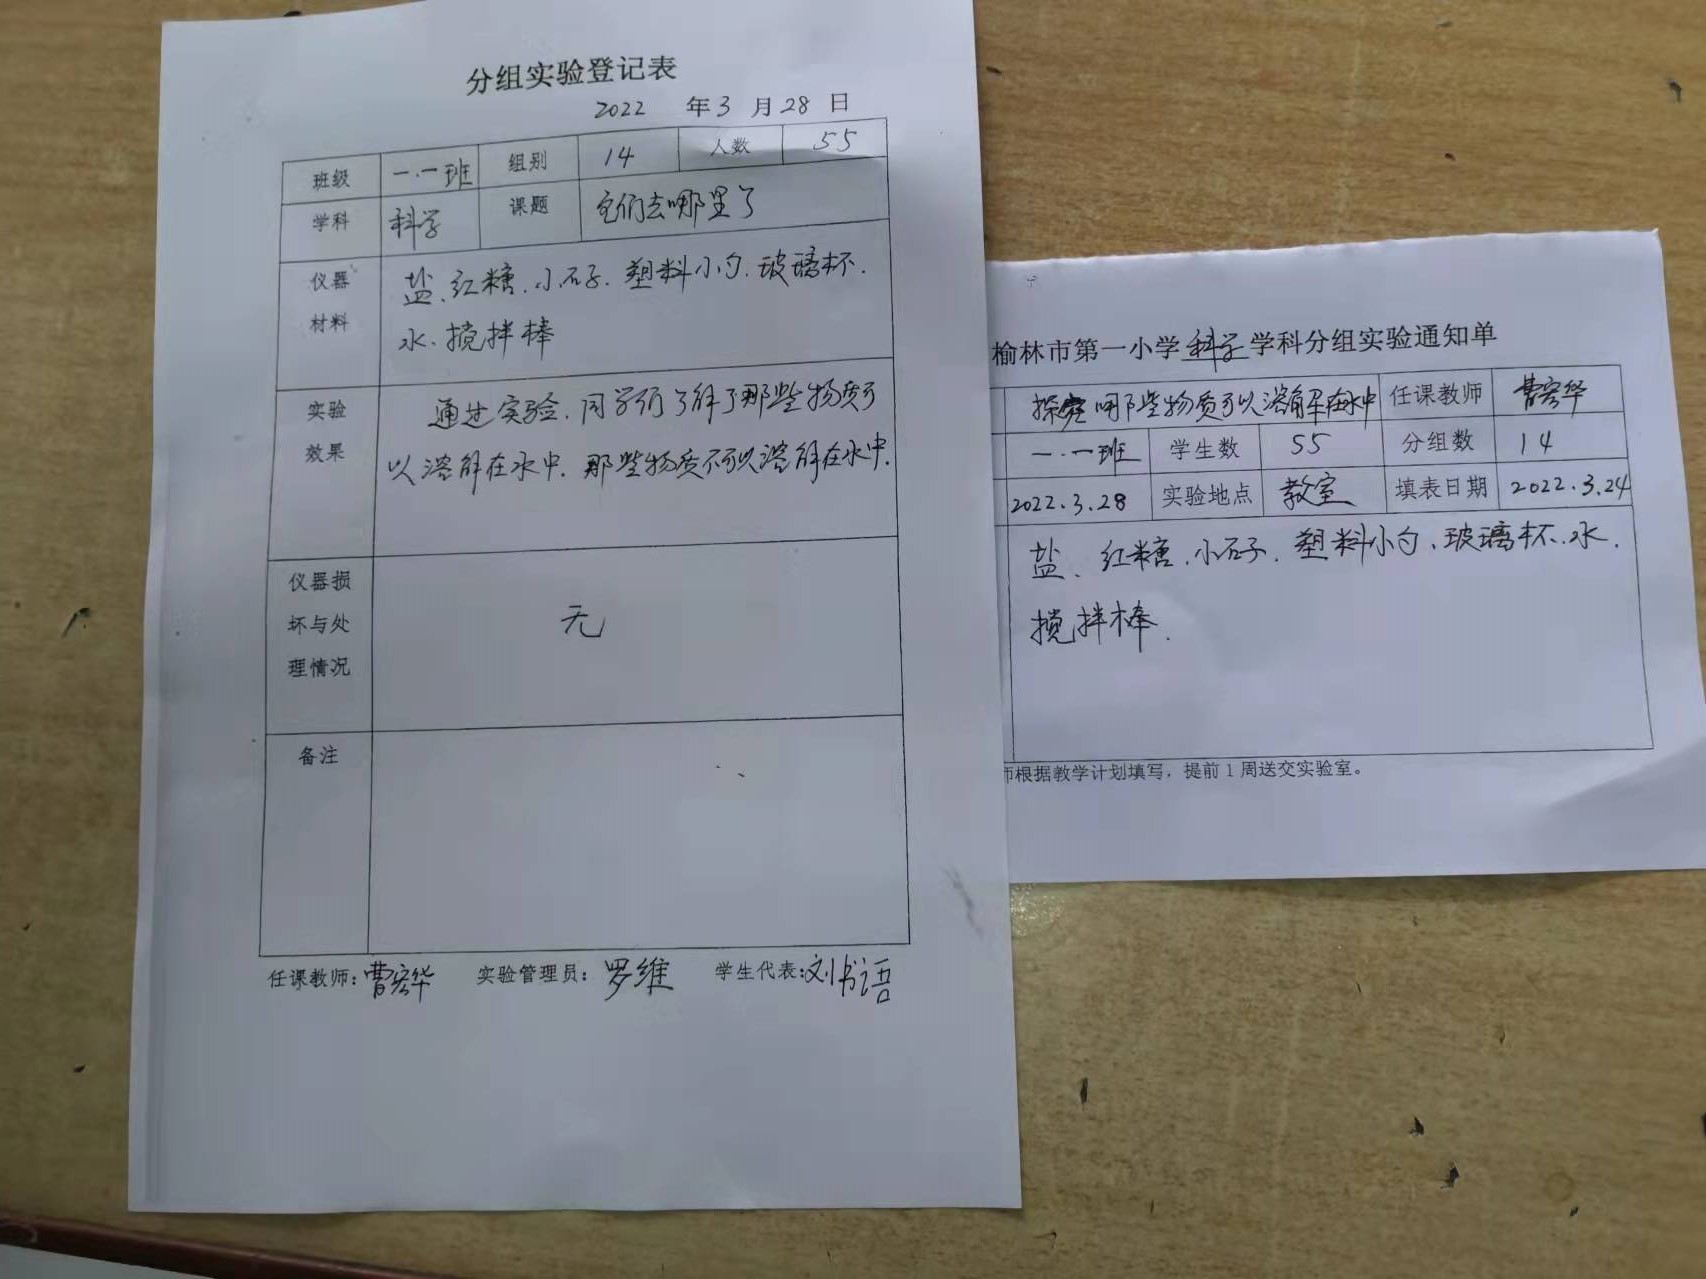 分组实验登记表
2022 年3月28日
班级 一.一班 组别 14 人数 55
学科 科学 课题 它们去哪里了
仪器 盐、红糖、小石子、塑料小勺、玻璃杯、
材料 水、搅拌棒
实验 通过实验，同学们了解了那些物质可
效果 以溶解在水中，那些物质不可以溶解在水中。
仪器损
坏与处 无
理情况
备注
任课教师：曹宏华 实验管理员：罗维 学生代表：刘书语
榆林市第一小学科学学科分组实验通知单
探究哪些物质可以溶解在水中 任课教师 曹宏华
一.一班 学生数 55 分组数 14
2022.3.28 实验地点 教室 填表日期 2022.3.24
盐、红糖、小石子、塑料小勺、玻璃杯、水、
搅拌棒.
师根据教学计划填写，提前1周送交实验室。